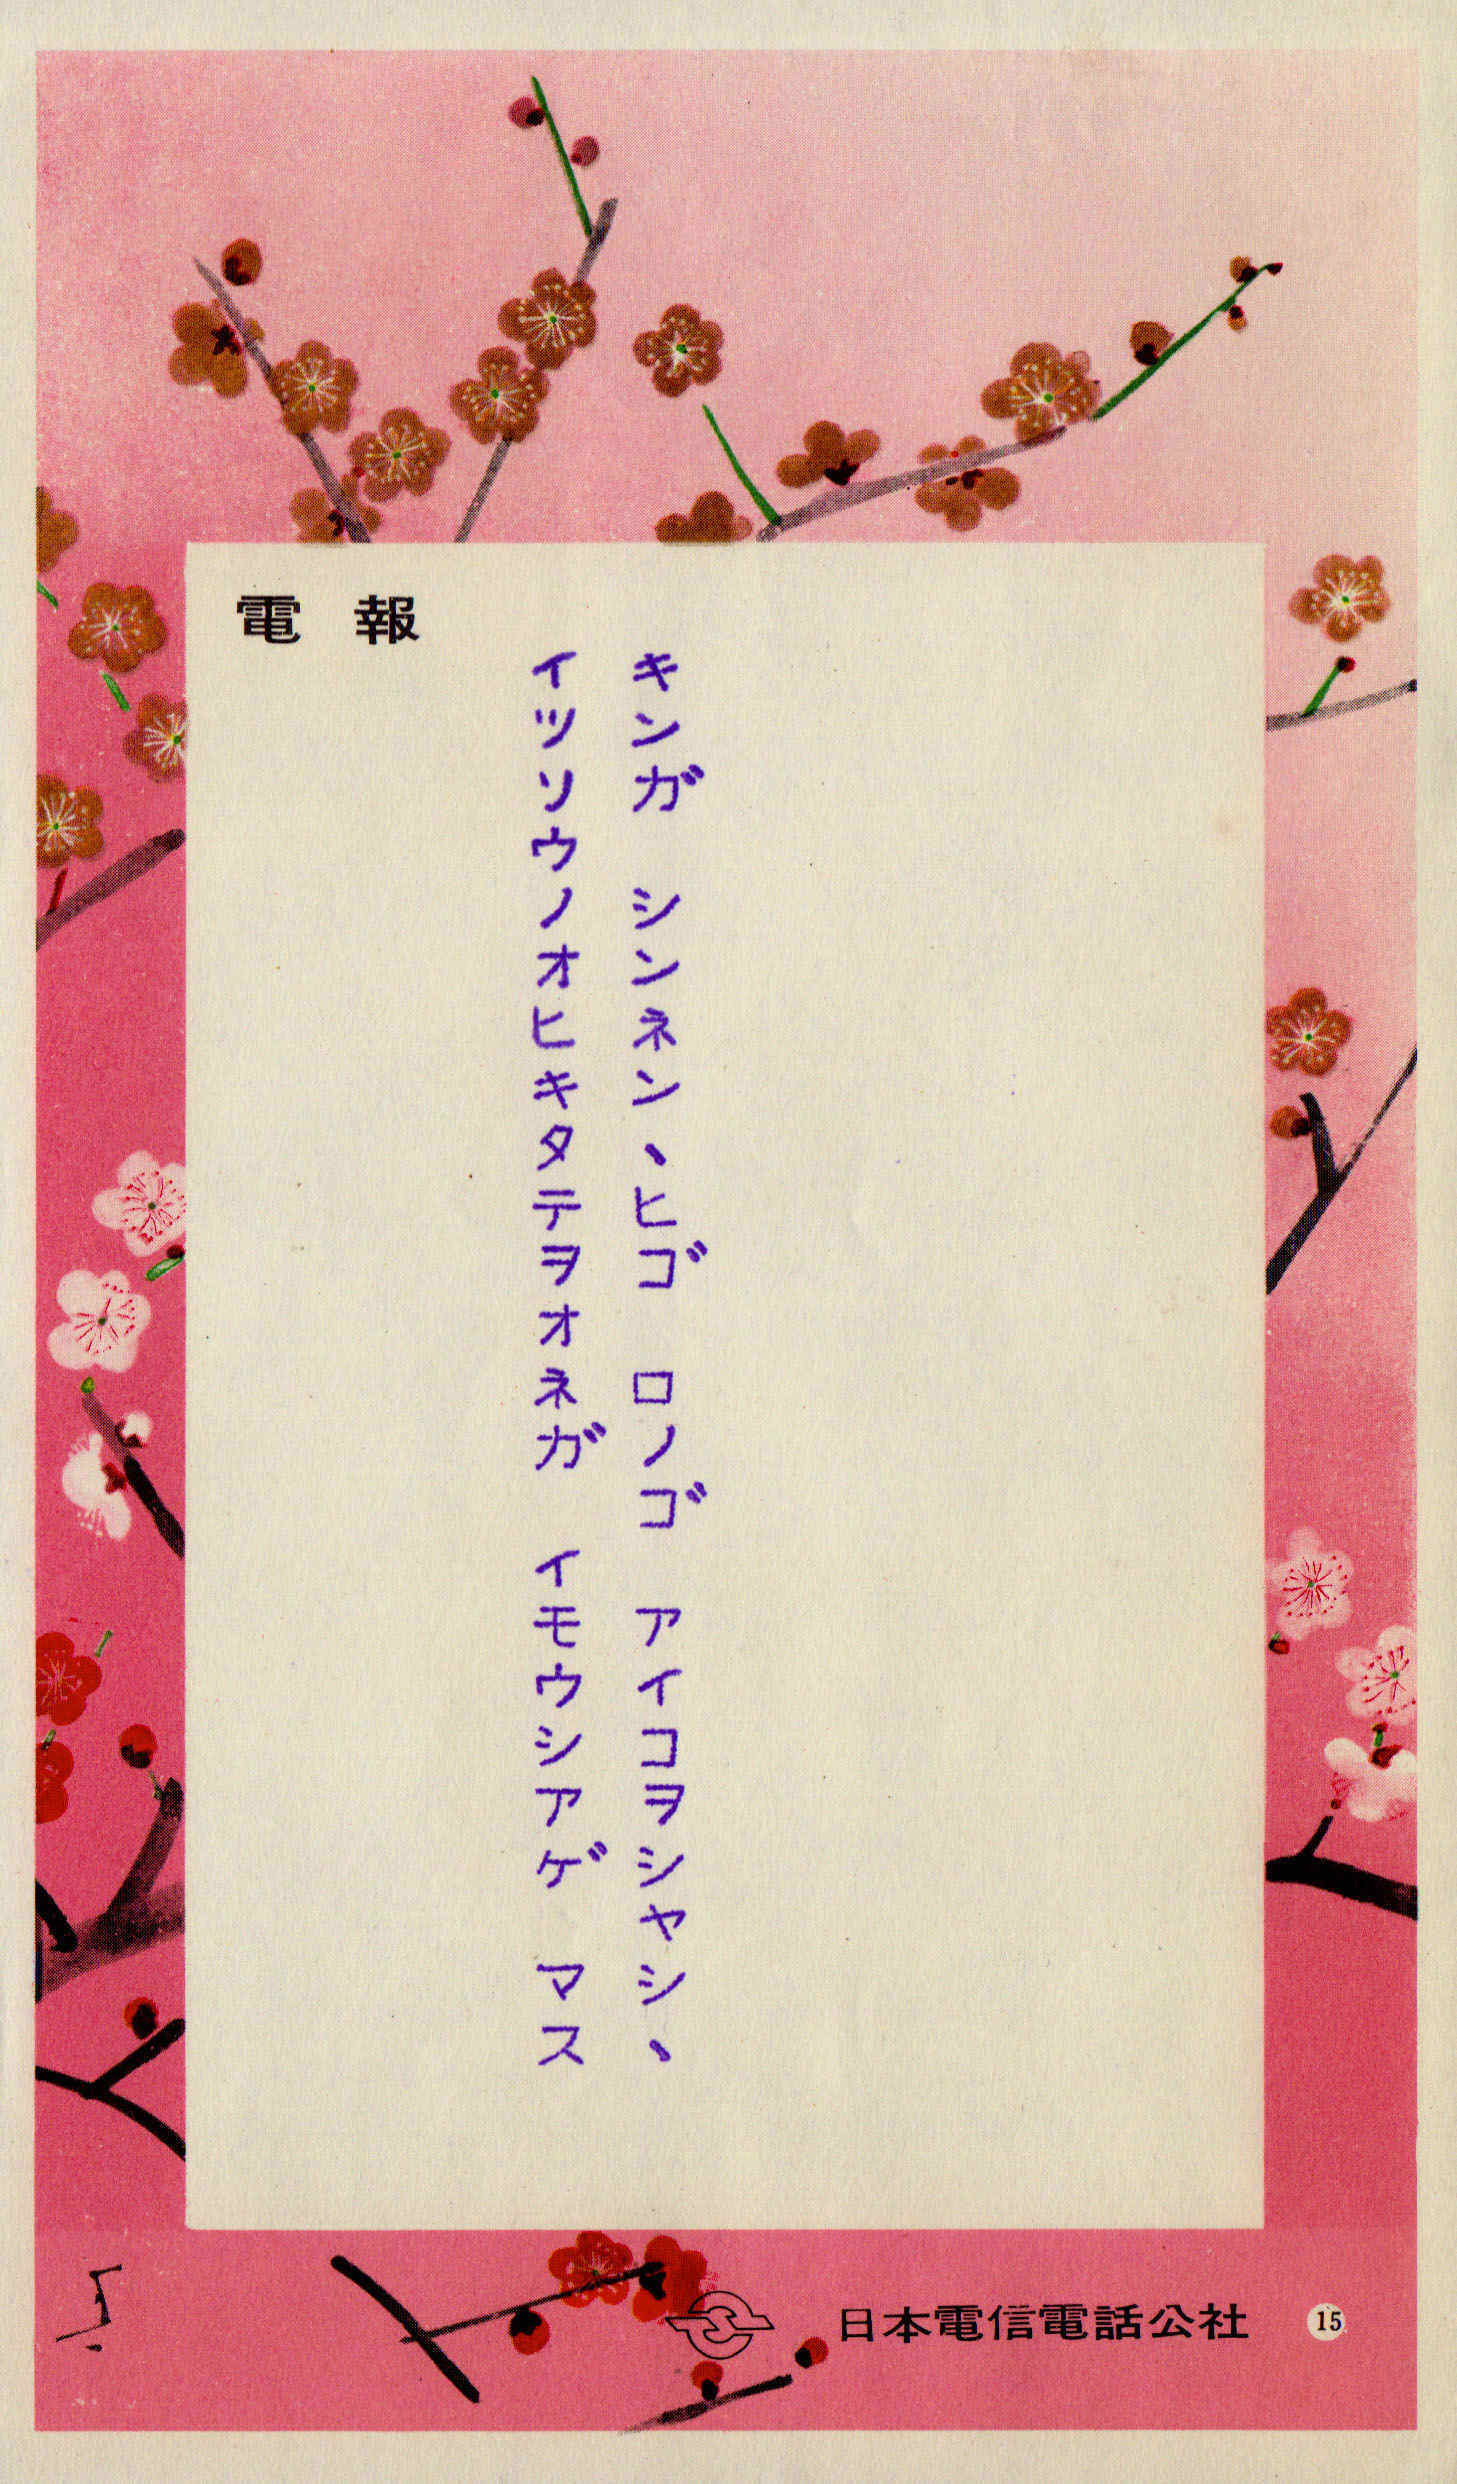 電報
キンガ シンネン、ヒゴ ロノゴ アイコヲシヤシ、
イツソウノオヒキタテヲオネガ イモウシアゲ マス
日本電信電話公社 15